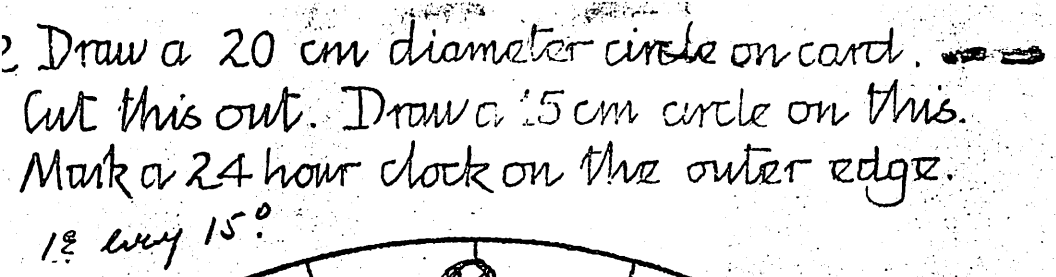 2 Draw a 20 cm diameter circle on card.
Cut this out. Draw a 15 cm circle on this.
Mark a 24 hour clock on the outer edge.
ie every 15°.